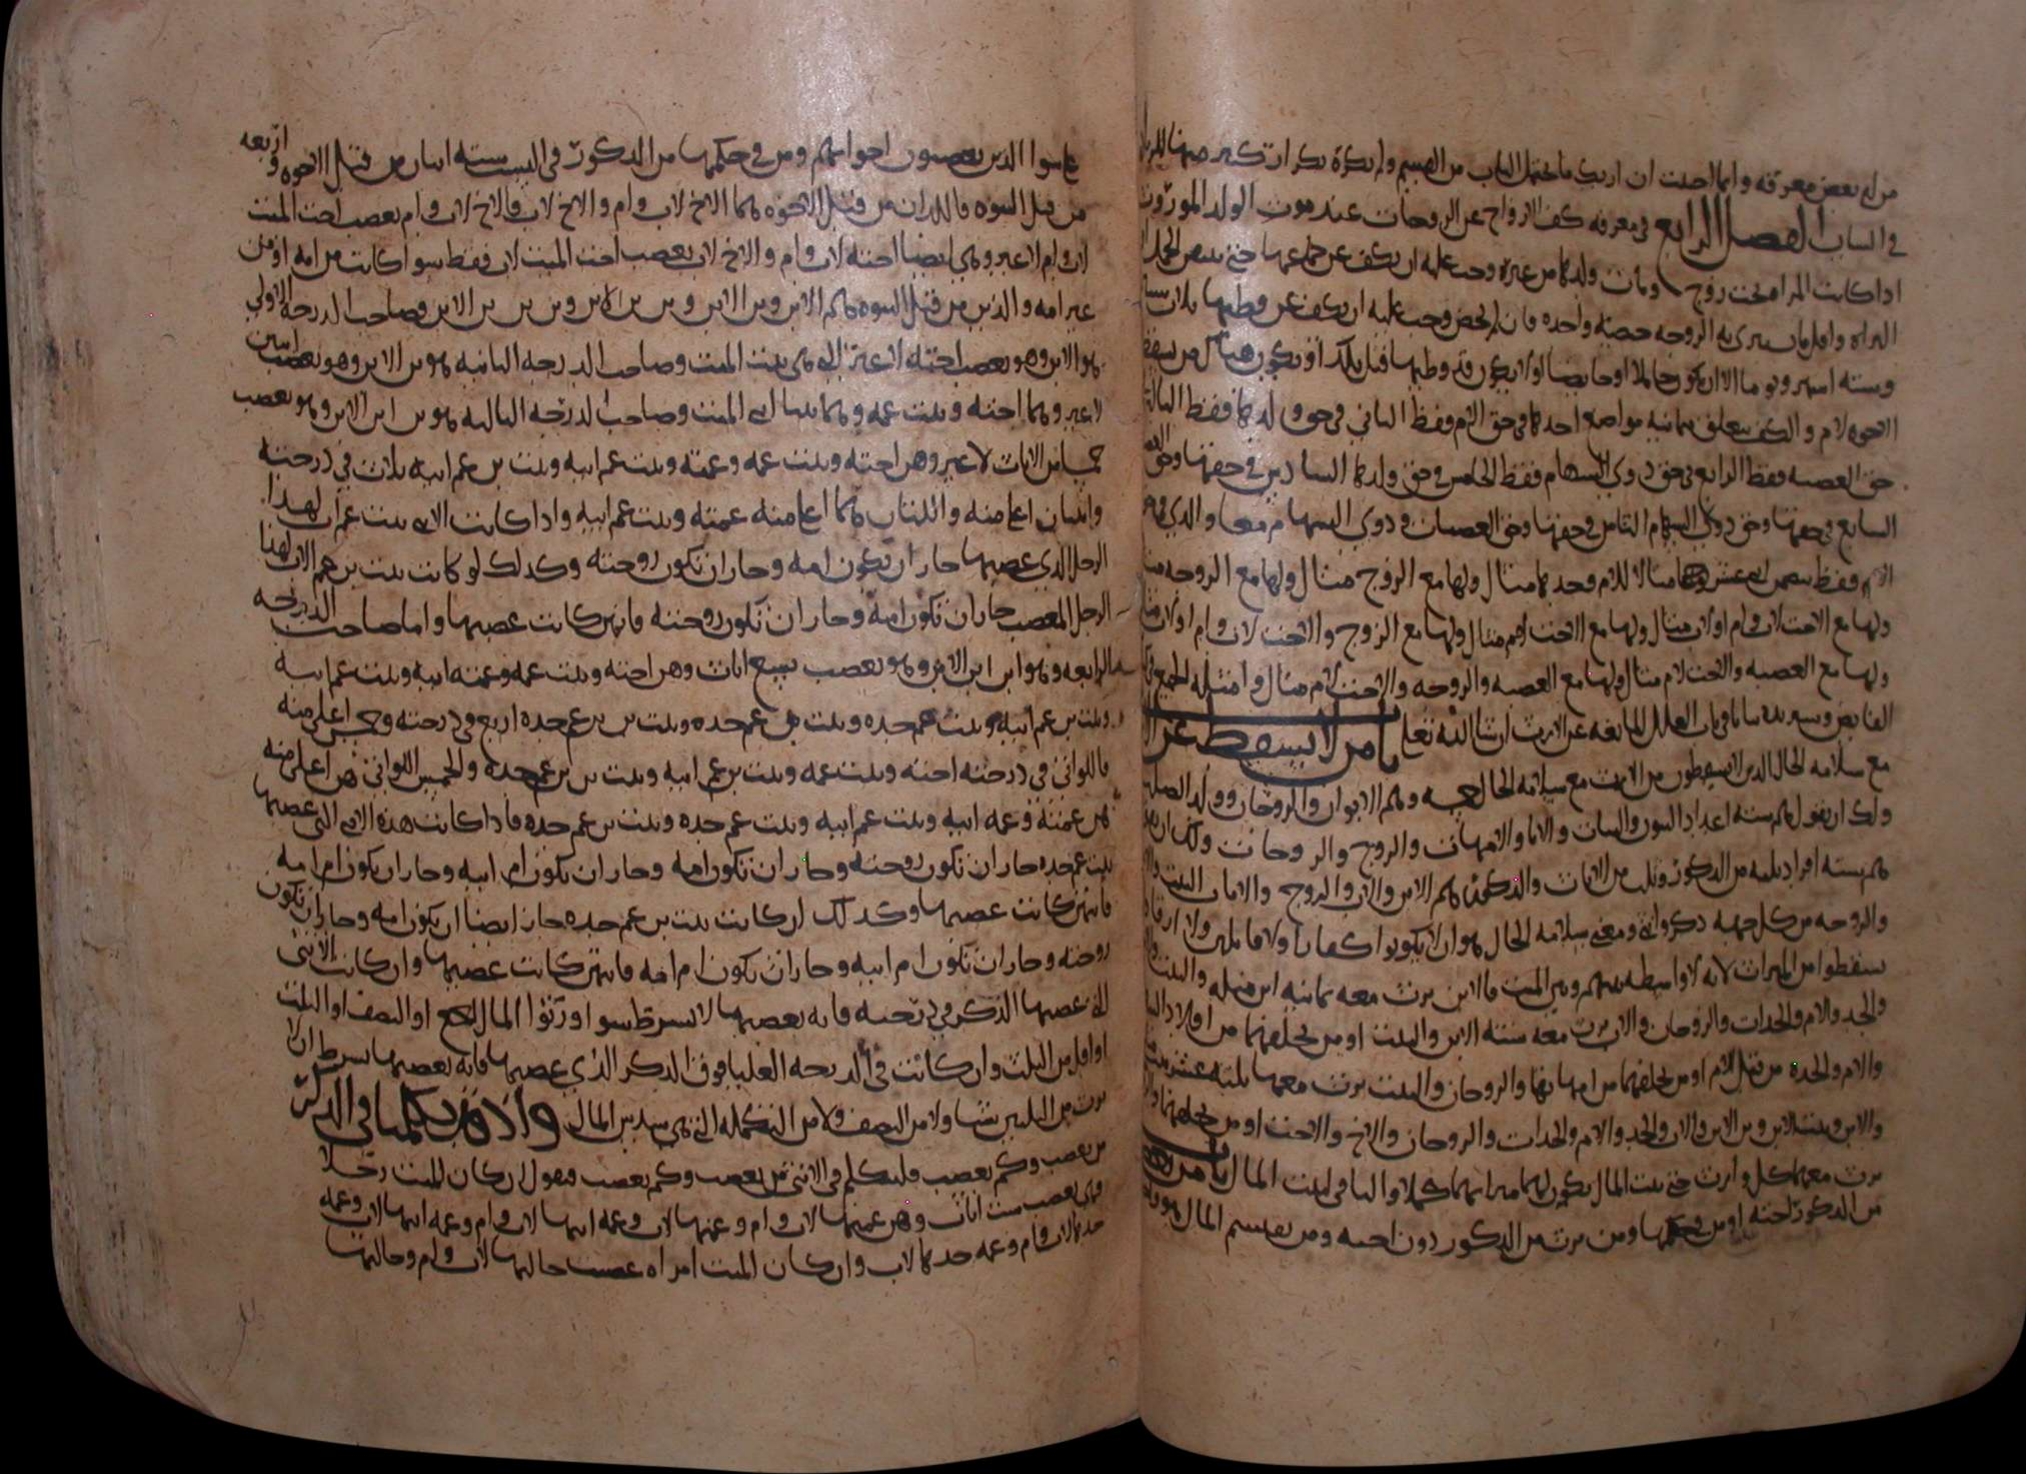 من له بعض معرفه وانما احلت ان اريك ما يحتمل الباب من القسم ولم نكره تكرار
في الباب الفصل الرابع في معرفه كف الازواج عن الزوجات عند موت الولد الموروث
اذا كانت المراه تحت زوج ومات ولدها من غيره وجب عليه ان يكف عن جماعها حتى
الحيض وجب عليه ان يكف عن وطيها ثلاث
وسته اشهر ويوما الا ان يكون حاملا او حايضا او لا يكون قد وطيها قبل ذلك او يكون هناك من يسقط
الاخوه لام والكف يتعلق بثمانيه مواضع احدها في حق الام فقط الثاني في حق ولدها فقط الثالث
حق العصبه فقط الرابع في حق ذوي السهام فقط الخامس في حق ولدها السادس في حقهما وحق
السابع في حقهما وحق ذوي السهام الثامن في حقهما وحق العصبات وذوي السهام معا والذي
الام فقط مثالا للام وحدها مثال ولها مع الزوج مثال ولها مع الزوجه
ولها مع الاخت لاب وام او لاب مثال ولها مع الاخت لام مثال ولها مع الزوج والاخت لاب وام او لاب
ولها مع العصبه والاخت لام مثال ولها مع العصبه والزوجه والاخت لام مثال وامثله الجميع في
الفايض وسنزيده بيانا في باب العلل المانعه عن الارث ان شا الله تعالى باب من لا يسقط عن
مع سلامه الحال الذين لا يسقطون من الارث مع سلامه الحال وهم الابوان والزوجان وولد الصلب
ولك ان تقول هم سته اعداد البنون والبنات والابا والامهات والزوج والزوجات ولك ان
هم سته افراد ثلثه من الذكور وثلث من الاناث والذكور هم الابن والاب والزوج والاناث البنت
والزوجه من كل جهه ذكر وانثى ومعنى سلامه الحال هو ان لا يكونوا كفارا ولا قاتلين ولا ارقا
سقطوا من الميراث لانه لا واسطه بينهم وبين الميت فالابن يرث معه ثمانيه ابن مثله والبنت
والجد والام والجدات والزوجان والاب يرث معه سته الابن والبنت او من يخلفهما من اولاد
والام والجده من قبل الام او من يخلفهما من امهاتها والزوجان والبنت يرث معها ثلثه عشر
والابن وبنت الابن وبن الابن والاب والجد والام والجدات والزوجان والاخ والاخت او من يخلفهما
يرث معهما كل وارث حتى بيت المال يكون لهما ميراثهما كملا والباقي لبيت المال باب من
من الذكور اخته او من في حكمها ومن يرث من الذكور دون اخته ومن يقسم المال
الذين يعصبون اخواتهم ومن في حكمها من الذكور في النسب سته اثنان من قبل الاخوه واربعه
من قبل البنوه فاللذان من قبل الاخوه هما الاخ لاب وام والاخ لاب فالاخ لاب وام يعصب اخت الميت
لاب وام لا غير وهي ايضا اخته لاب وام والاخ لاب يعصب اخت الميت لاب فقط سوا كانت من امه او من
غير امه والذين من قبل البنوه هم الابن وبن الابن وبن بن الابن وبن بن بن الابن فصاحب الدرجه الاولى
هو الابن وهو يعصب اخته لا غير التي هي بنت الميت وصاحب الدرجه الثانيه هو بن الابن وهو يعصب اثنتين
لا غير وهما اخته وبنت عمه وهما بنتا ابن الميت وصاحب الدرجه الثالثه هو بن ابن الابن وهو يعصب
خمسا من الاناث لا غير وهن اخته وبنت عمه وعمته وبنت عم ابيه وبنت بن عم ابيه ثلاث في درجته
واثنتان اعلا منه واللتان هما اعلا منه عمته وبنت عم ابيه واذا كانت الانثى بنت عم اب لهذا
الرجل الذي عصبها جاز ان تكون امه وجاز ان تكون زوجته وكذلك لو كانت بنت بن عم الاب لهذا
الرجل المعصب جاز ان تكون امه وجاز ان تكون زوجته فايتهن كانت عصبها واما صاحب الدرجه
الرابعه فهو ابن ابن ابن الابن وهو يعصب تسع اناث وهن اخته وبنت عمه وعمته وعمة ابيه وبنت عم ابيه
وبنت بن عم ابيه وبنت عم جده وبنت بن عم جده وبنت بن بن عم جده اربع في درجته وخمس اعلى منه
فاللواتي في درجته اخته وبنت عمه وبنت بن عم ابيه وبنت بن ابن عم جده والخمس اللواتي هن اعلى منه
هن عمته وعمه ابيه وبنت عم ابيه وبنت عم جده وبنت بن عم جده فاذا كانت هذه الانثى التي عصبها
بنت عم جده جاز ان تكون زوجته وجاز ان تكون امه وجاز ان تكون ام ابيه وجاز ان تكون ام امه
فايتهن كانت عصبها وكذلك ان كانت بنت بن عم جده جاز ايضا ان تكون امه وجاز ان تكون
زوجته وجاز ان تكون ام ابيه وجاز ان تكون ام امه فايتهن كانت عصبها وان كانت الانثى
التي عصبها الذكر في درجته فانه يعصبها لا بشرط سوا ورثوا المال او النصف او الثلث
او اقل من الثلث وان كانت في الدرجه العليا فوق الذكر الذي عصبها فانه يعصبها بشرط ان لا
يرث من الثلثين شيا ولا من النصف ولا من التكمله التي هي سدس المال واذ قد تكلمنا في الذكر
من يعصب وكم يعصب فلنتكلم في الانثى من يعصب وكم يعصب فنقول ان كان الميت رجلا
يعصب ست اناث وهن عمتها لاب وام وعمتها لاب وعمه ابيها لاب وام وعمه ابيها لاب وعمه
جدها لاب وام وعمه جدها لاب وان كان الميت امراه عصبت خالتها لاب وام وخالتها